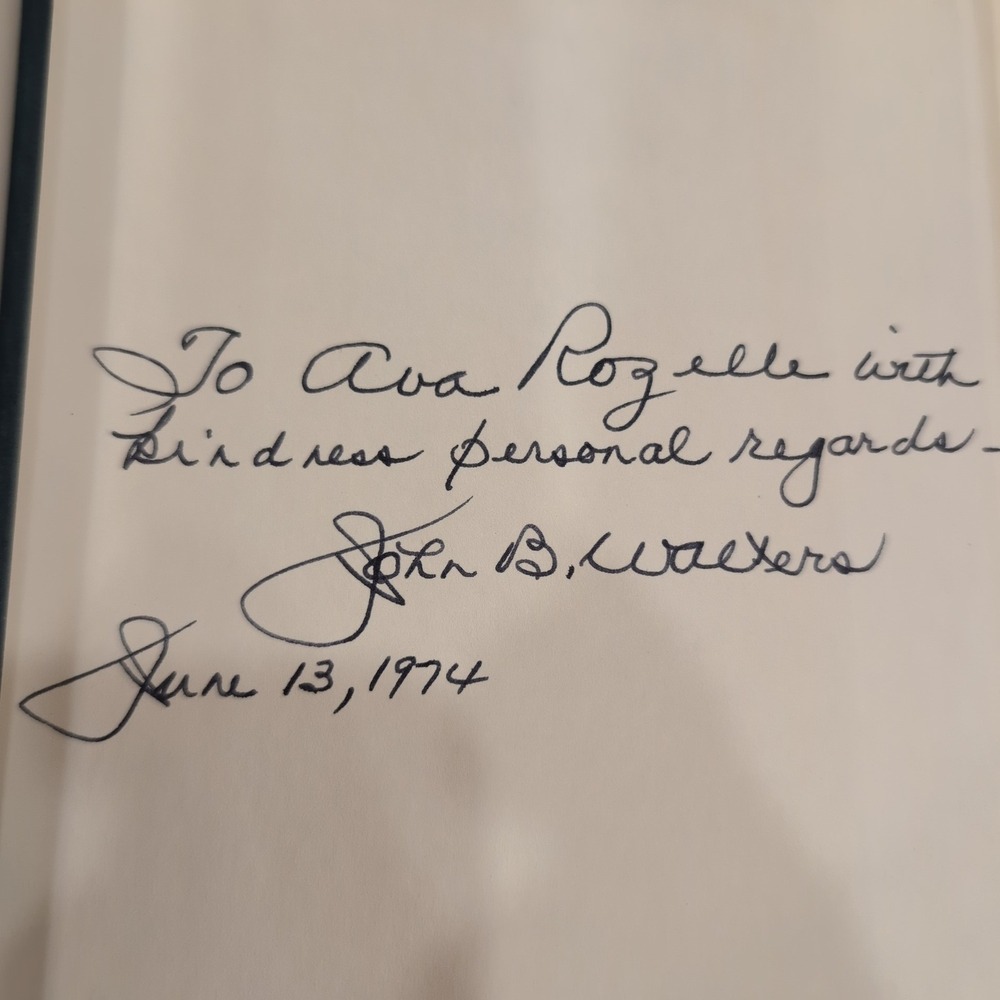 To Ava Rozelle with
kindness personal regards -
John B. Walters
June 13, 1974